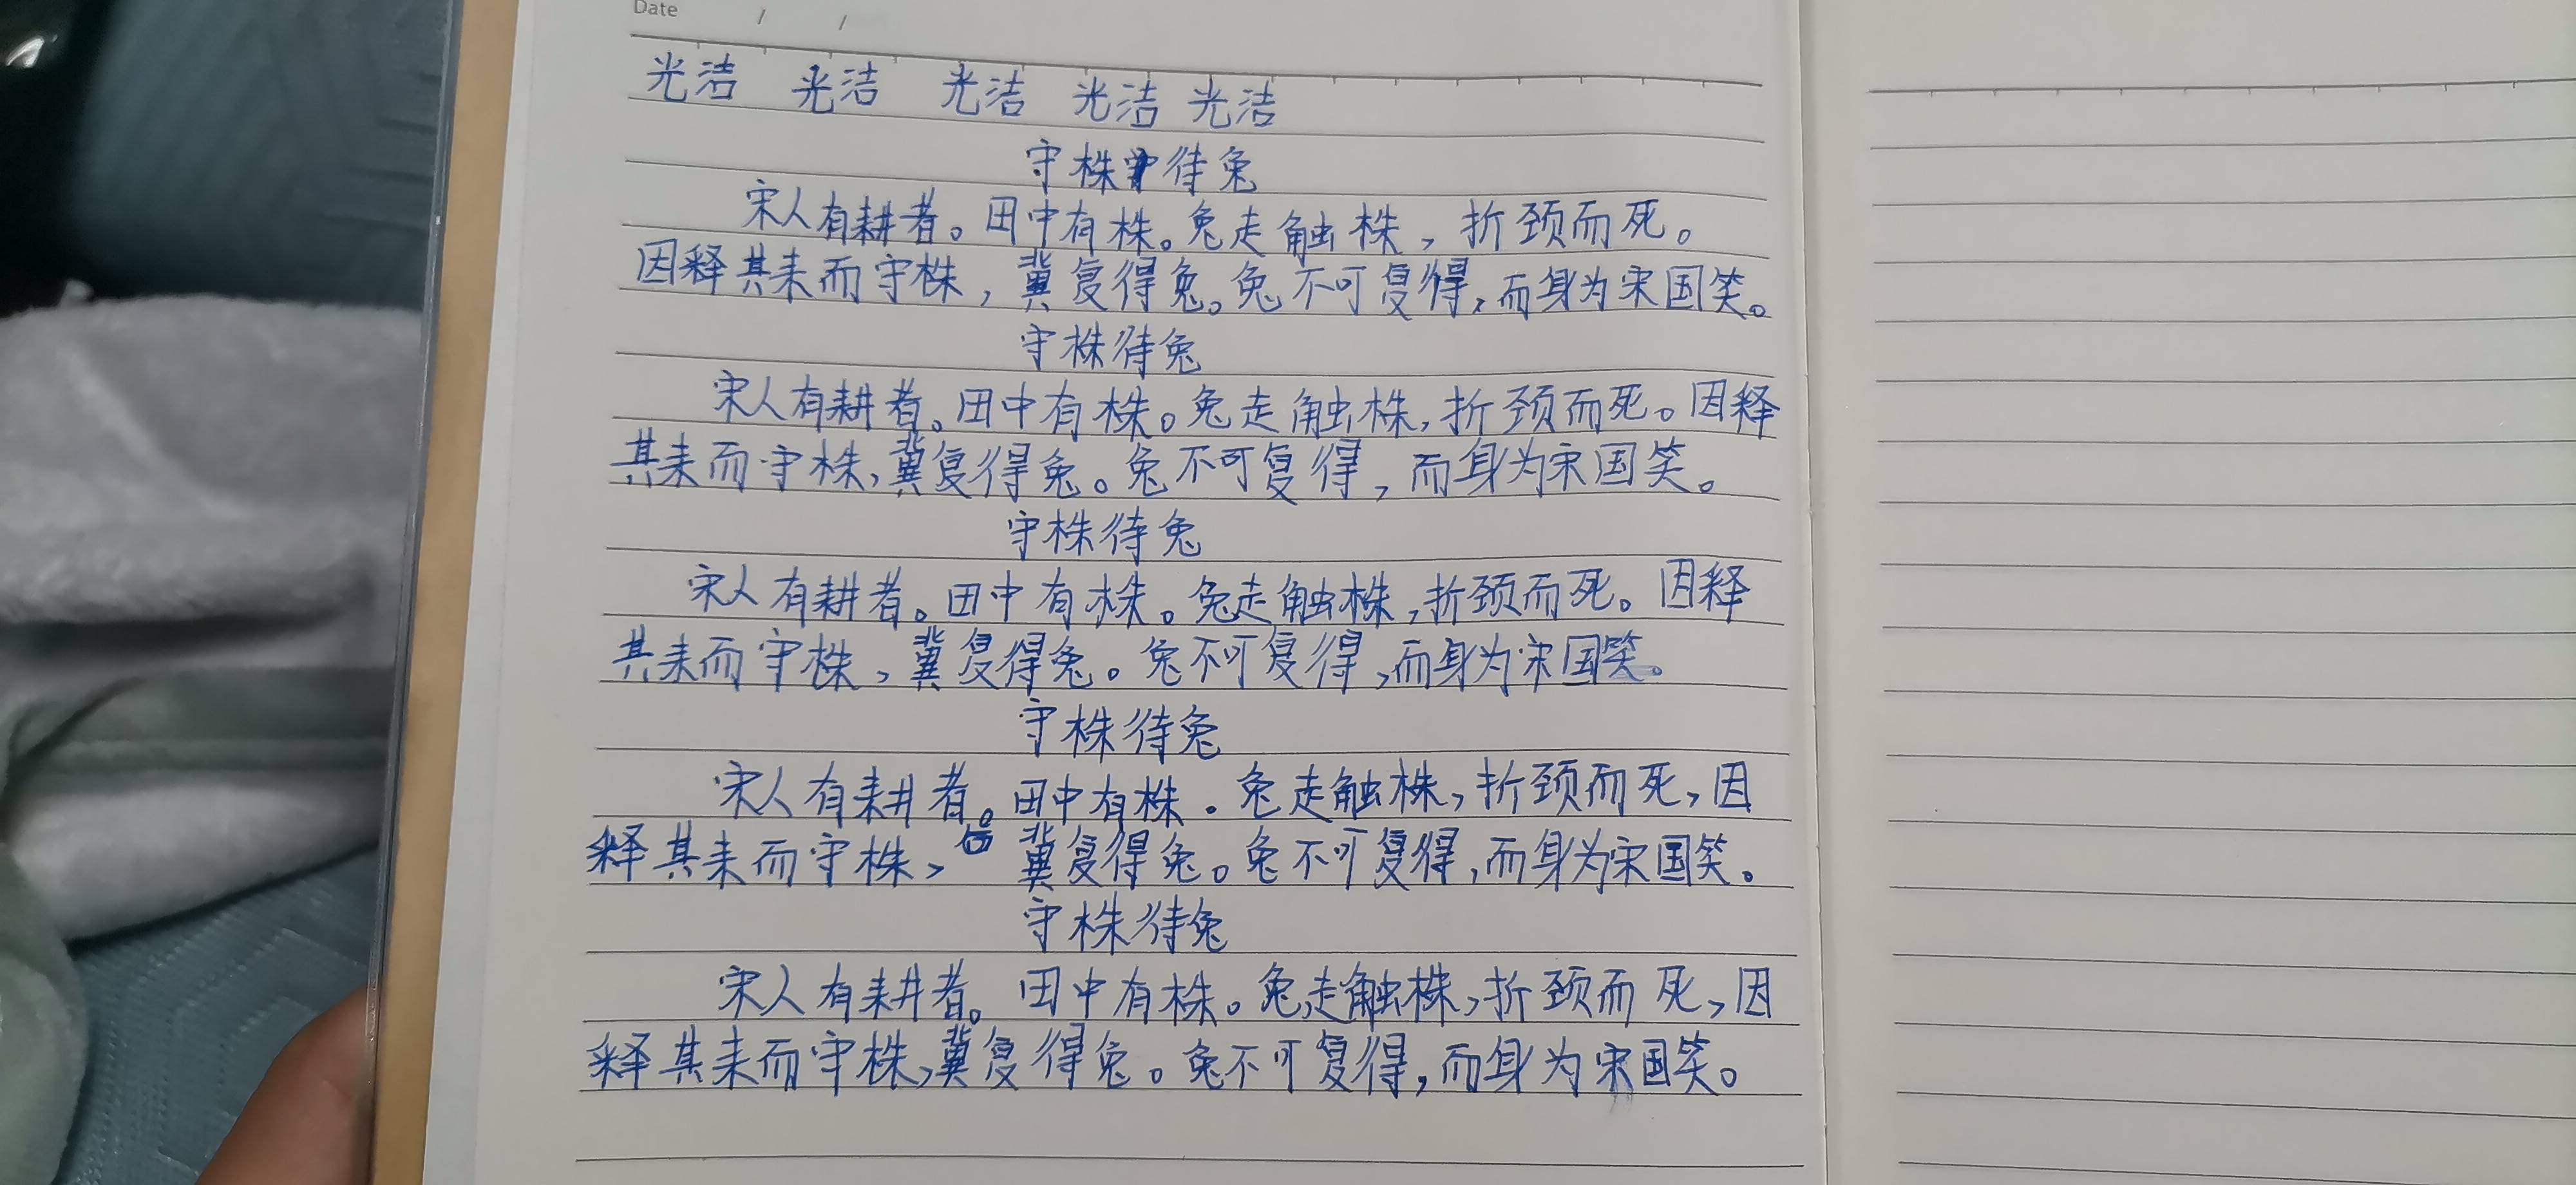 Date / /
光洁 光洁 光洁 光洁 光洁
守株待兔
宋人有耕者。田中有株。兔走触株，折颈而死。
因释其耒而守株，冀复得兔。兔不可复得，而身为宋国笑。
守株待兔
宋人有耕者。田中有株。兔走触株，折颈而死。因释
其耒而守株，冀复得兔。兔不可复得，而身为宋国笑。
守株待兔
宋人有耕者。田中有株。兔走触株，折颈而死。因释
其耒而守株，冀复得兔。兔不可复得，而身为宋国笑。
守株待兔
宋人有耕者。田中有株。兔走触株，折颈而死，因
释其耒而守株，冀复得兔。兔不可复得，而身为宋国笑。
守株待兔
宋人有耕者。田中有株。兔走触株，折颈而死，因
释其耒而守株，冀复得兔。兔不可复得，而身为宋国笑。